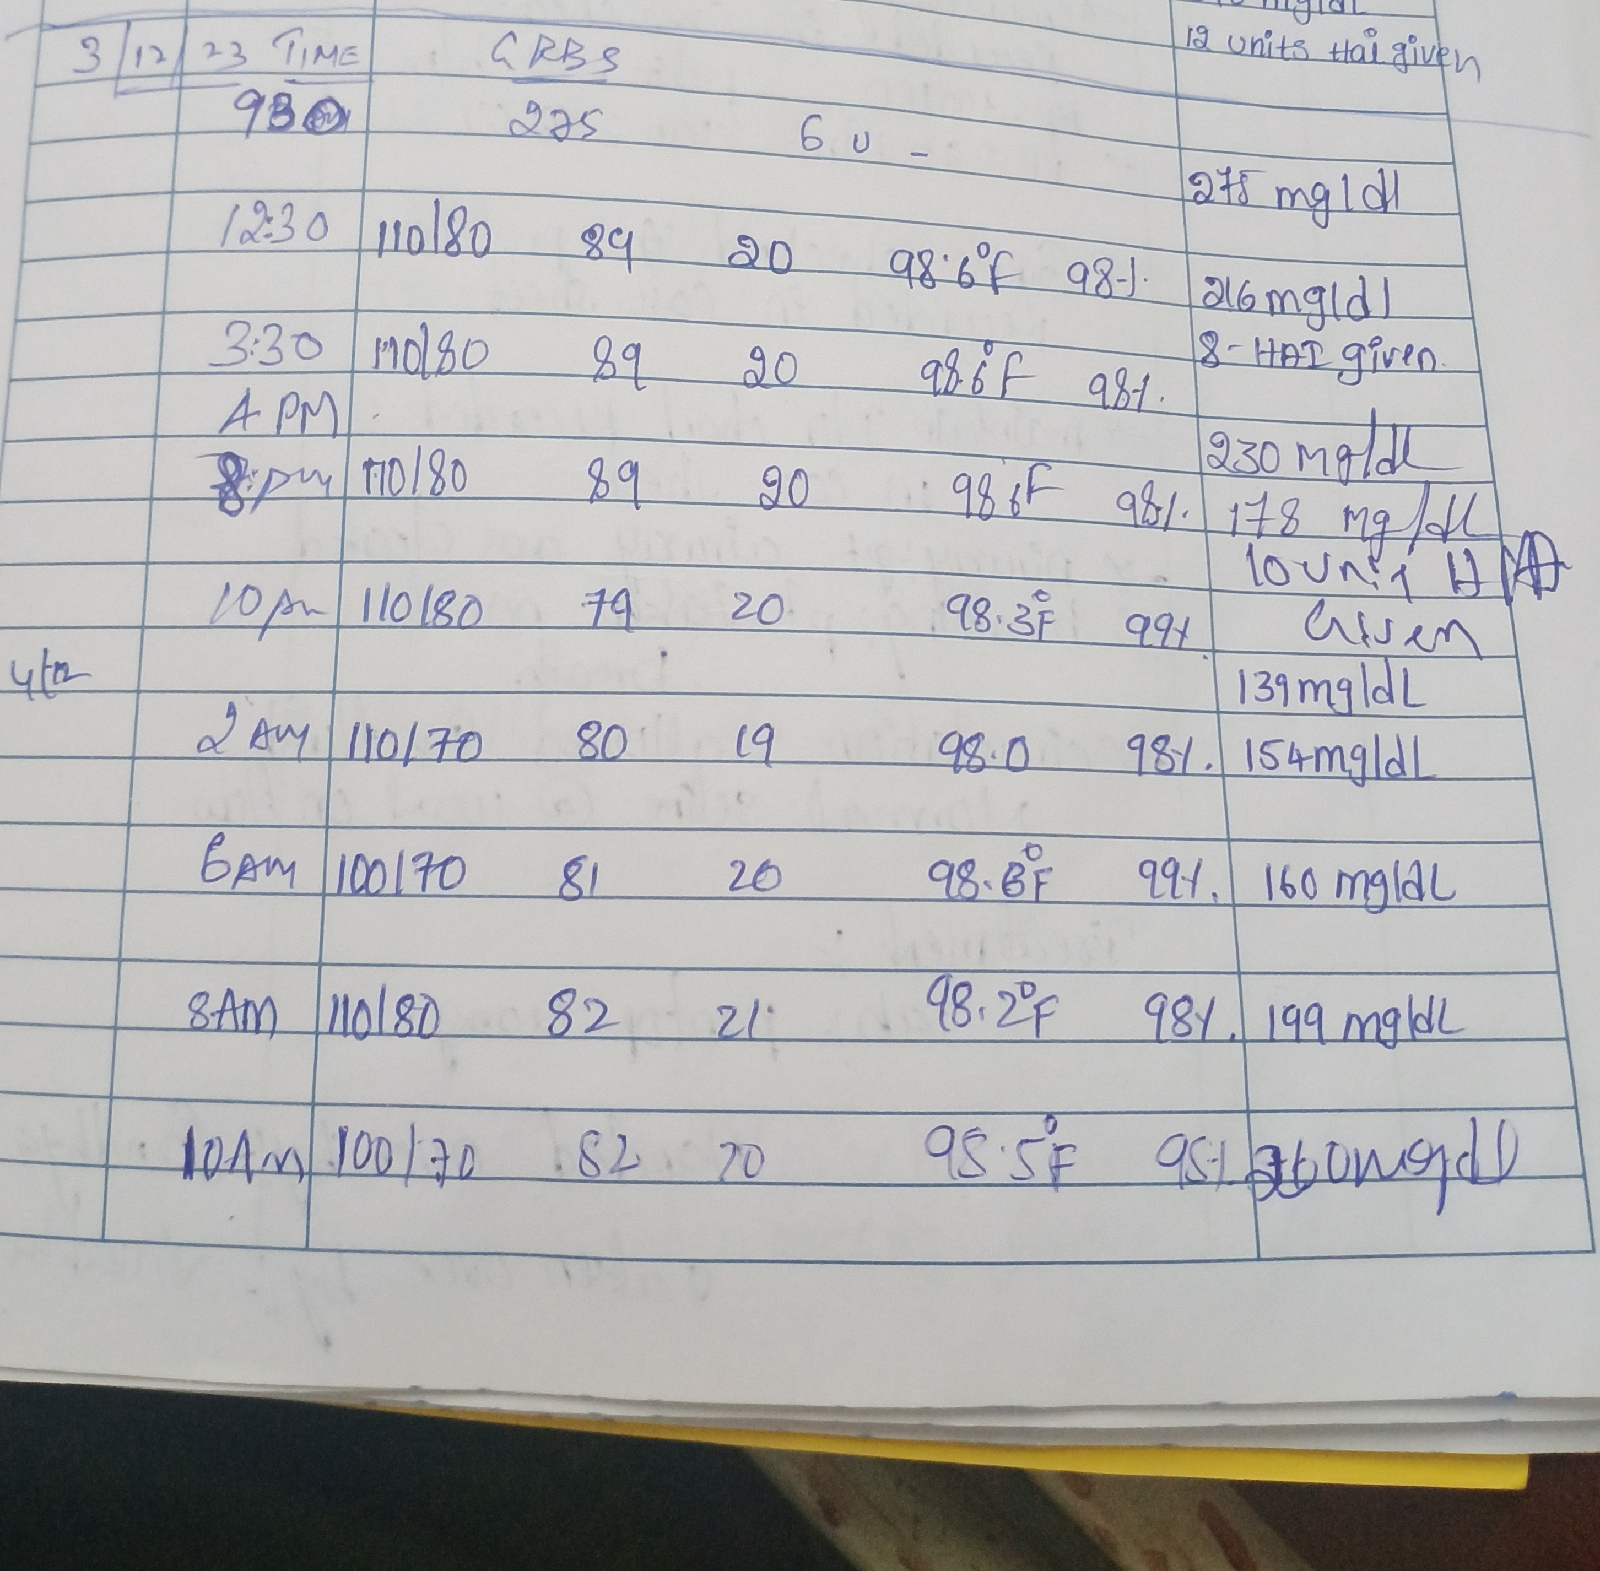 12 units HAI given
3/12/23 TIME GRBS
930 275 6 U -
275 mg/dl
12:30 110/80 89 20 98.6°F 98%.
216 mg/dl
3:30 110/80 89 20 98.6°F 98%.
8-HAI given.
4 PM
230 mg/dL
8 pm 110/80 89 20 98.6F 98%. 178 mg/dL
10 unit
10 pm 110/80 79 20 98.3°F 99% Given
4/12
139 mg/dL
2 AM 110/70 80 19 98.0 98%. 154 mg/dL
6 AM 100/70 81 20 99%. 160 mg/dL
8 AM 110/80 82 21 98.2°F 98%. 199 mg/dL
10 AM 100/70 82 20 98.5°F 98%